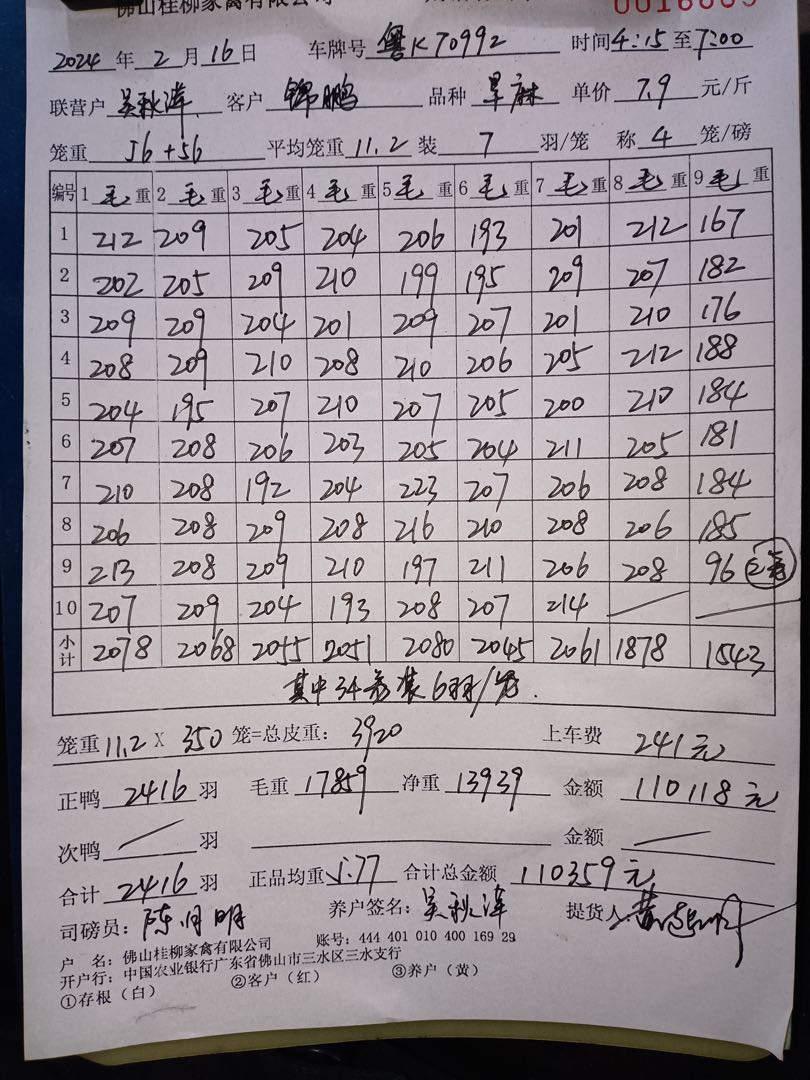 佛山桂柳家禽有限公司
2024 年 2 月 16 日 车牌号 粤K70992 时间 4:15 至 7:00
联营户 吴秋洋 客户 锦鹏 品种 旱麻 单价 7.9 元/斤
笼重 56+56 平均笼重 11.2 装 7 羽/笼 称 4 笼/磅
编号 1 毛 重 2 毛 重 3 毛 重 4 毛 重 5 毛 重 6 毛 重 7 毛 重 8 毛 重 9 毛 重
1 212 209 205 204 206 193 201 212 167
2 202 205 209 210 199 195 209 207 182
3 209 209 204 201 209 207 201 210 176
4 208 209 210 208 210 206 205 212 188
5 204 195 207 210 207 205 200 210 184
6 207 208 206 203 205 204 211 205 181
7 210 208 192 204 223 207 206 208 184
8 206 208 209 208 216 210 208 206 185
9 213 208 209 210 197 211 206 208 96
10 207 209 204 193 208 207 214
小计 2078 2068 2055 2051 2080 2045 2061 1878 1543
其中34笼装6羽/笼.
笼重 11.2 X 350 笼=总皮重: 3920 上车费 241元
正鸭 2416 羽 毛重 17859 净重 13939 金额 110118元
次鸭 羽 金额
合计 2416 羽 正品均重 5.77 合计总金额 110359元
司磅员: 陈月明 养户签名: 吴秋洋 提货人:
户 名: 佛山桂柳家禽有限公司 账号: 444 401 010 400 169 29
开户行: 中国农业银行广东省佛山市三水区三水支行
①存根(白) ②客户(红) ③养户(黄)